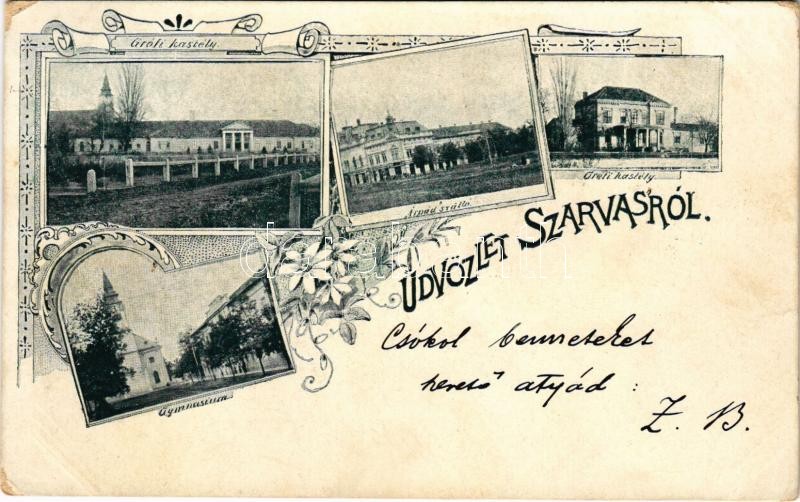 Grófi kastély.
Árpád szálló
Grófi kastély.
ÜDVÖZLET SZARVASRÓL.
Gymnasium.
Csókol benneteket
szerető atyád :
Z. B.